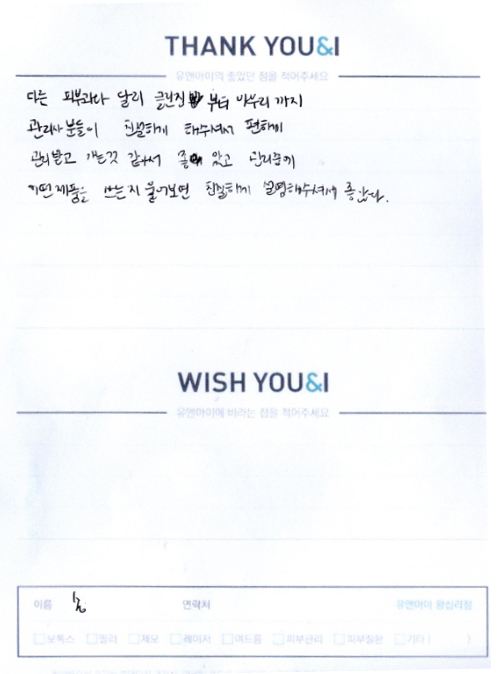 THANK YOU&I
유앤아이의 좋았던 점을 적어주세요
다른 피부과와 달리 클렌징 부터 마무리 까지
관리사 분들이 친절하게 해주셔서 편하게
관리받고 가는것 같아서 좋았고 관리중에
어떤제품을 쓰는지 물어보면 친절하게 설명해주셔서 좋았다.
WISH YOU&I
유앤아이에 바라는 점을 적어주세요
이름 연락처 유앤아이 왕십리점
보톡스 필러 제모 레이저 여드름 피부관리 피부질환 기타 ( )